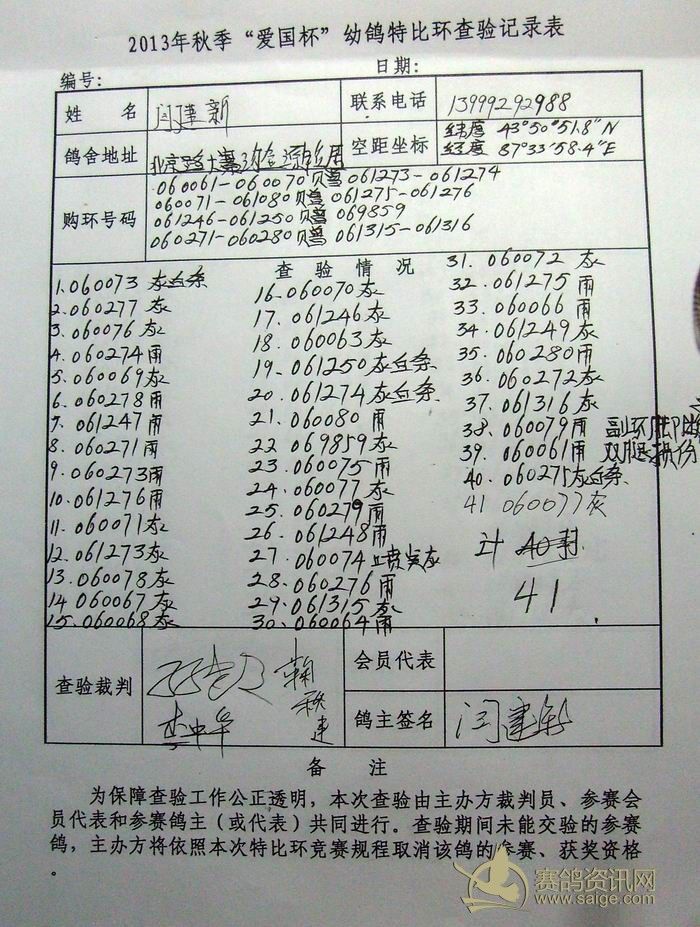 2013年秋季“爱国杯”幼鸽特比环查验记录表
编号： 日期：
姓 名 闫建新 联系电话 13999292988
鸽舍地址 北京路 空距坐标 纬度 43°50′51.8″N
经度 87°33′58.4″E
购环号码 060061-060070贝赠061273-061274
060071-061080贝赠061275-061276
061246-061250贝赠069859
060271-060280贝赠061315-061316
查 验 情 况
1.060073 灰白条
2.060277 灰
3.060076 灰
4.060274雨
5.060069灰
6.060278雨
7.061247雨
8.060271雨
9.060273雨
10.061276雨
11.060071灰
12.061273灰
13.060078灰
14 060067灰
15.060068灰
16.060070灰
17.061246灰
18.060063灰
19.061250灰白条
20.061274灰白条
21.060080雨
22 069859灰
23.060075雨
24.060077灰
25.060279雨
26.061248雨
27.060074 灰
28.060276雨
29.061315灰
30.060064雨
31.060072灰
32.061275雨
33.060066雨
34.061249灰
35.060280雨
36.060272灰
37.061316灰
38.060079雨 副环
39.060061雨 双腿损伤
40.060275灰白条
41 060077灰
计 40羽
41
查验裁判 李中华 会员代表
鸽主签名 闫建新
备 注
为保障查验工作公正透明，本次查验由主办方裁判员、参赛会
员代表和参赛鸽主（或代表）共同进行。查验期间未能交验的参赛
鸽，主办方将依照本次特比环竞赛规程取消该鸽的参赛、获奖资格
。
赛鸽资讯网
www.saige.com